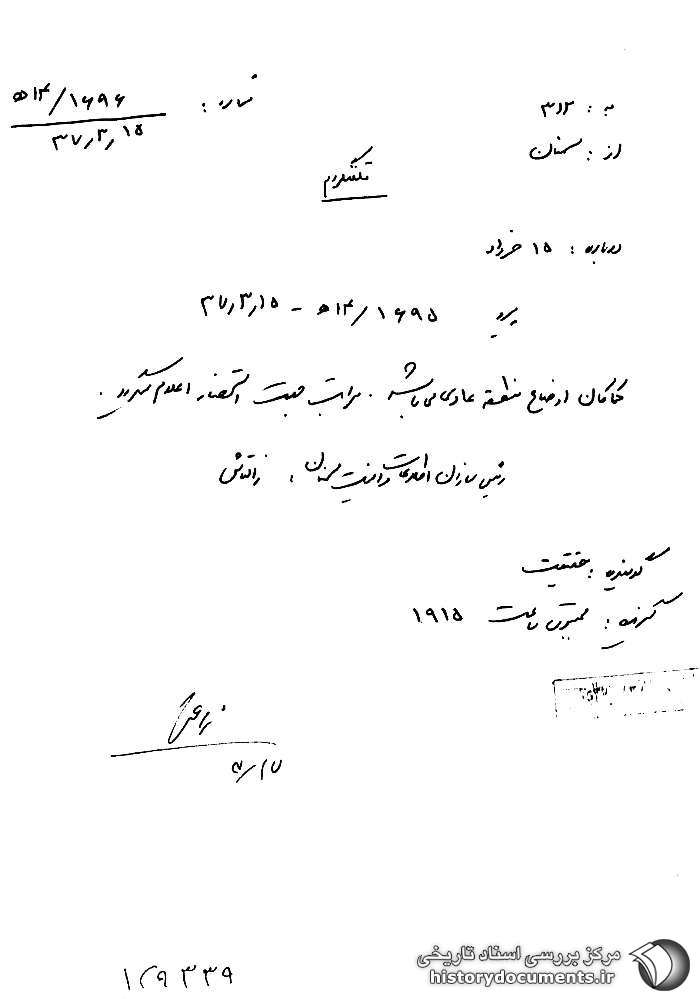 به : ۳۱۲
از : سمنان
شماره : ۱۶۹۶/ ۱۴ه‍
۳۷٫۳٫۱۵
تلفنگرام
درباره : ۱۵ خرداد
پیرو ۱۶۹۵/ ۱۴ه‍ – ۳۷٫۳٫۱۵
کماکان اوضاع منطقه عادی می باشد . مراتب جهت استحضار اعلام میگردد .
رئیس سازمان اطلاعات و امنیت سمنان .
گوینده : حقیقت
گیرنده : ساعت ۱۹۱۵
۳/۱۷
۱۲۹۳۳۹
مرکز بررسی اسناد تاریخی
historydocuments.ir